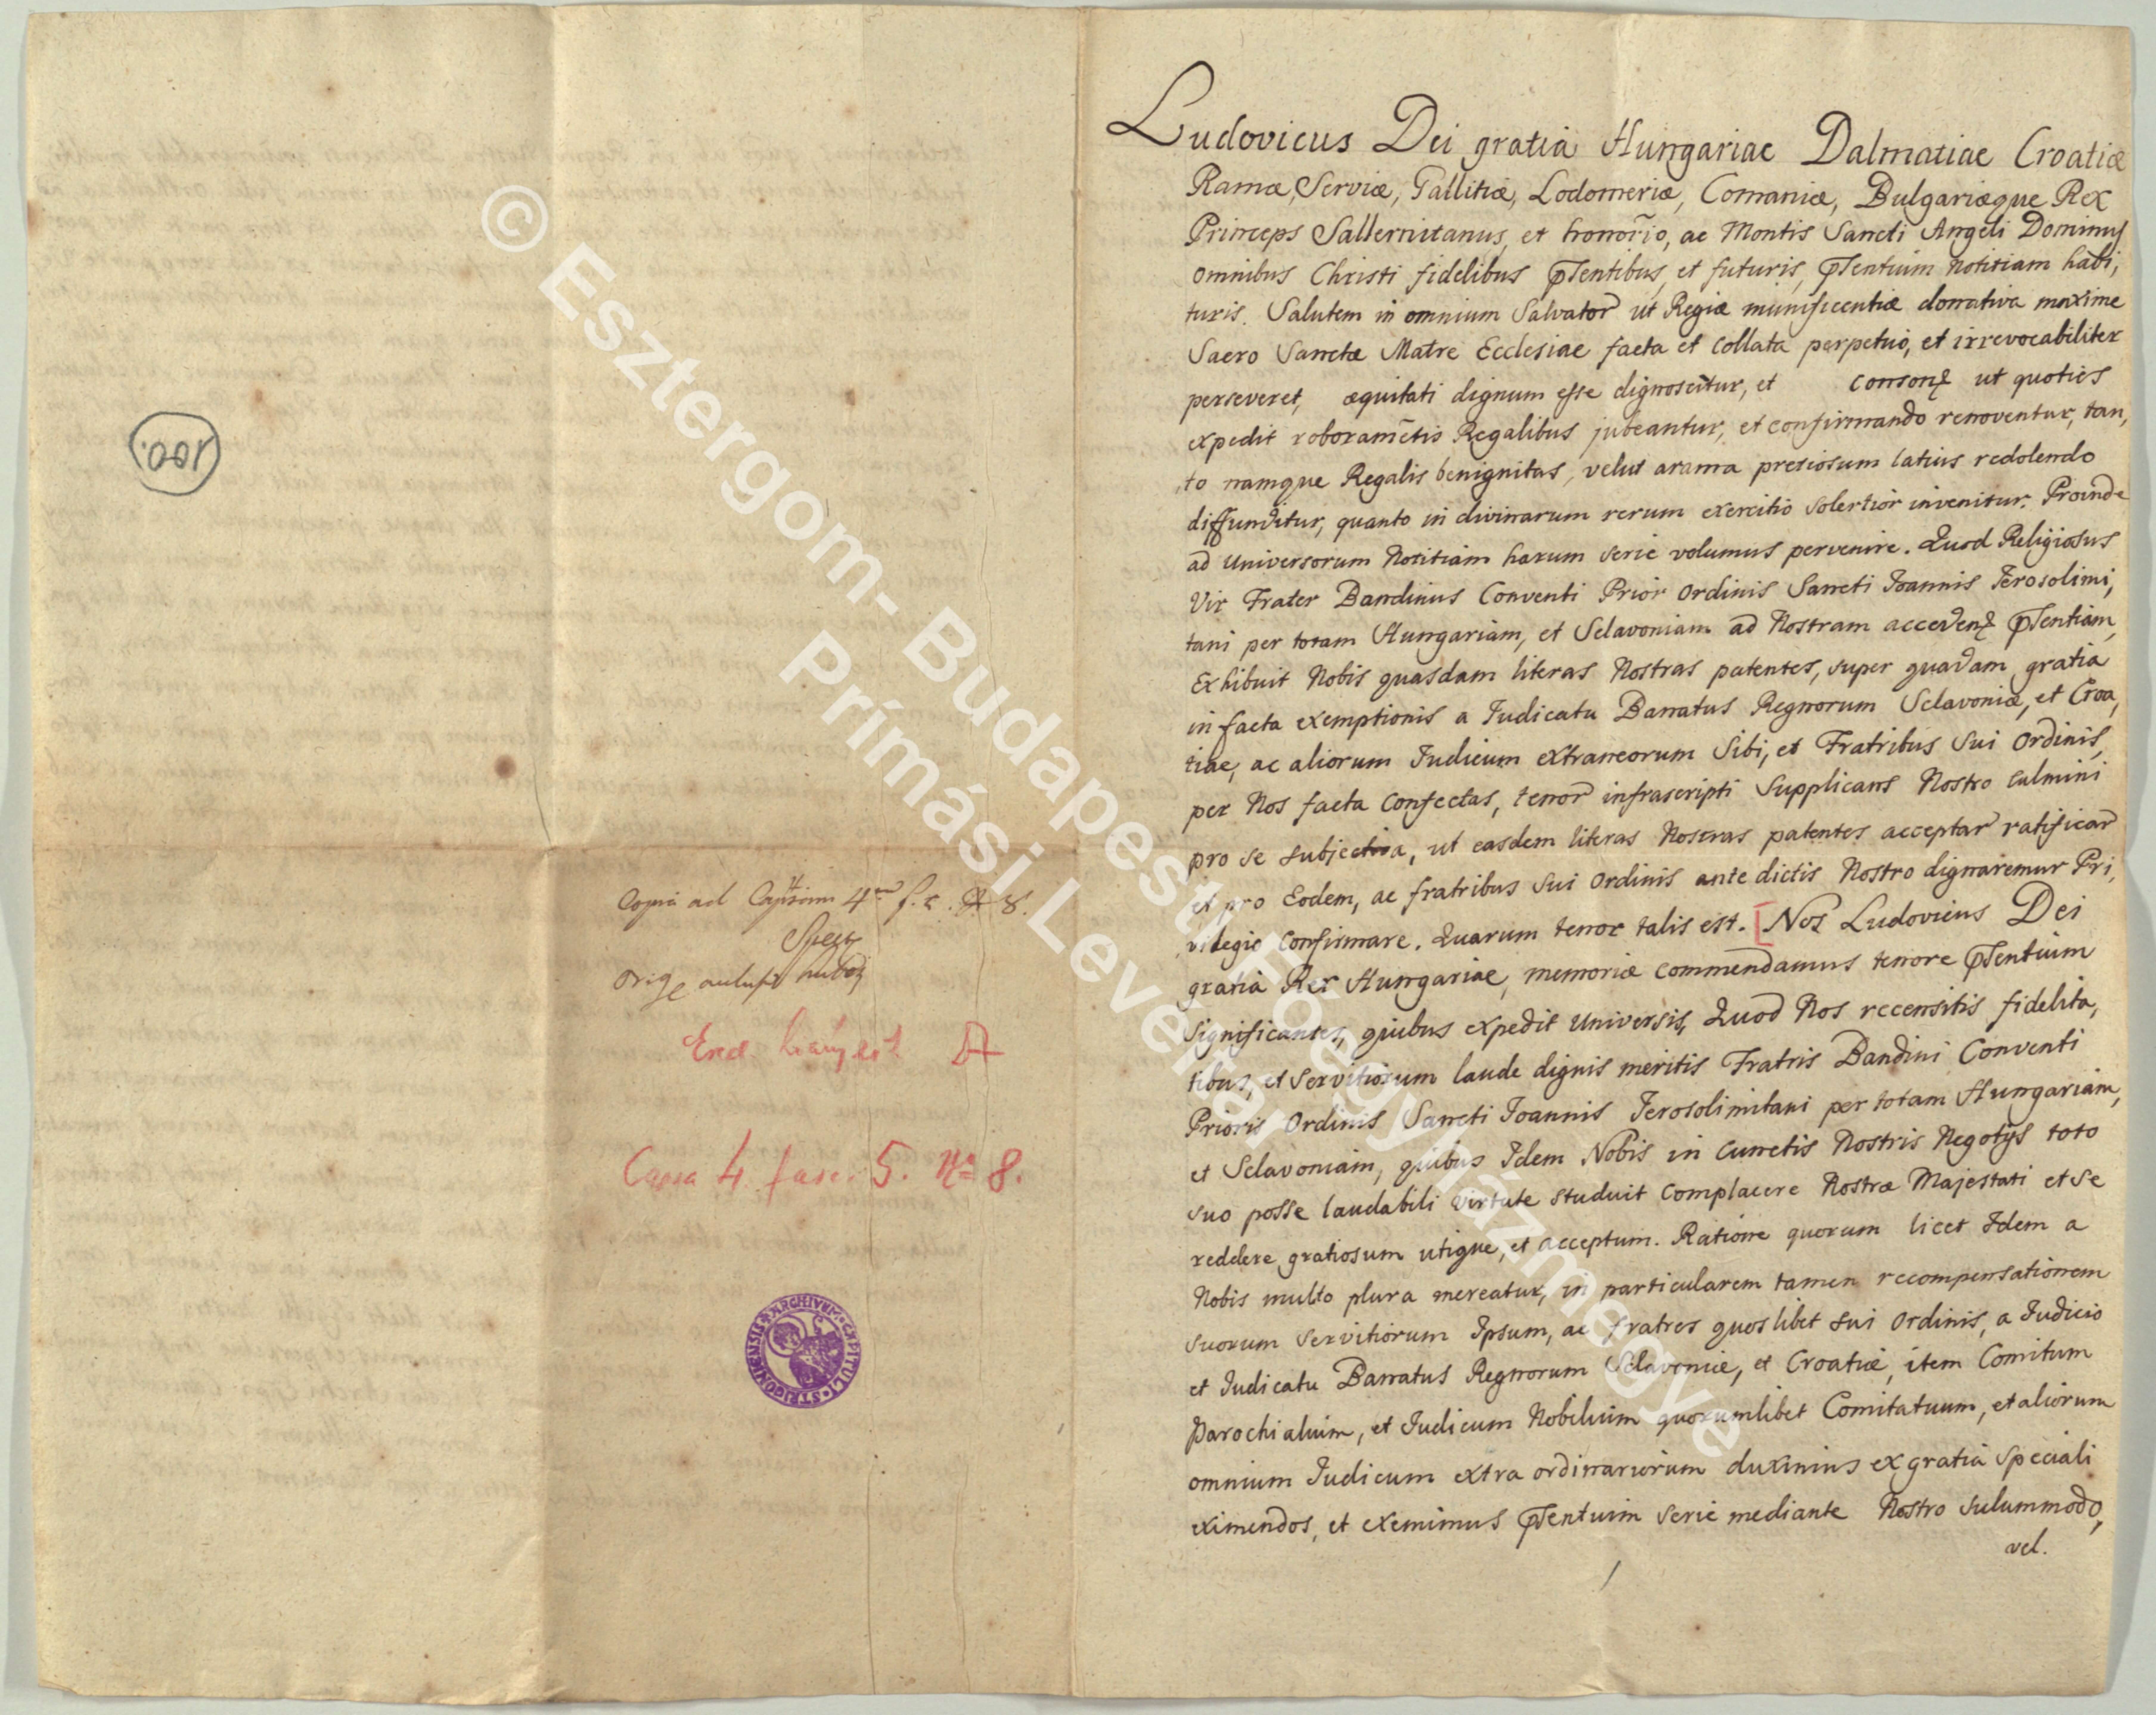 100.
Copia ad Capsam 4am f. 5. N 8.
Orig
Ered. hiányzik A
Capsa 4. fasc. 5. No 8.
ARCHIVUM · CAPITULI · STRIGONIENSIS
Ludovicus Dei gratia Hungariae Dalmatiae Croatiæ
Ramæ, Serviæ, Gallitiæ, Lodomeriæ, Comaniæ, Bulgariæque Rex
Princeps Sallernitanus, et honorio, ac Montis Sancti Angeli Dominus
omnibus Christi fidelibus pſentibus, et futuris, pſentium notitiam habi,
turis. Salutem in omnium Salvator ut Regiæ munificentiæ donativa maxime
Sacro Sanctæ Matre Ecclesiae facta et collata perpetuo, et irrevocabiliter
perseveret, æquitati dignum esse dignoscitur, et consonę ut quoties
expedit roboramētis Regalibus jubeantur, et confirmando renoventur, tan,
to namque Regalis benignitas, velut arama pretiosum latius redolendo
diffunditur, quanto in divinarum rerum exercitio solertior invenitur. Proinde
ad Universorum Notitiam harum serie volumus pervenire. Quod Religiosus
Vir Frater Bandinus Conventi Prior Ordinis Sancti Joannis Jerosolimi,
tani per totam Hungariam, et Sclavoniam ad Nostram accedenę pſentiam,
Exhibuit Nobis quasdam literas Nostras patentes, super quadam gratia
in facta exemptionis a Judicatu Banatus Regnorum Sclavoniæ, et Croa,
tiae, ac aliorum Judicum extraneorum Sibi, et Fratribus Sui Ordinis,
per Nos facta confectas, tenor infrascripti Supplicans Nostro culmini
pro se subjectiva, ut easdem literas Nostras patentes acceptar ratificar
et pro Eodem, ac fratribus Sui Ordinis ante dictis Nostro dignaremur Pri,
vilegio confirmare. Quarum tenor talis est. [Nos Ludovicus Dei
gratia Rex Hungariae, memoriæ commendamus tenore pſentium
significantes, quibus expedit Universis, Quod Nos recensitis fidelita,
tibus, et Servitiorum laude dignis meritis Fratris Bandini Conventi
Prioris Ordinis Sancti Joannis Jerosolimitani per totam Hungariam,
et Sclavoniam, quibus Idem Nobis in cunctis Nostris Negotijs toto
suo posse laudabili virtute studuit complacere Nostræ Majestati et se
reddere gratiosum utique, et acceptum. Ratione quorum licet Idem a
Nobis multo plura mereatur, in particularem tamen recompensationem
suorum servitiorum Ipsum, ac fratres quoslibet sui Ordinis, a Judicio
et Judicatu Banatus Regnorum Sclavoniæ, et Croatiæ, item Comitum
Parochialium, et Judicum Nobilium quorumlibet Comitatuum, et aliorum
omnium Judicum extra ordinariorum duximus ex gratia speciali
eximendos, et exemimus pſentium serie mediante Nostro sulummodo,
vel.
© Esztergom- Budapesti Főegyházmegye
Prímási Levéltár